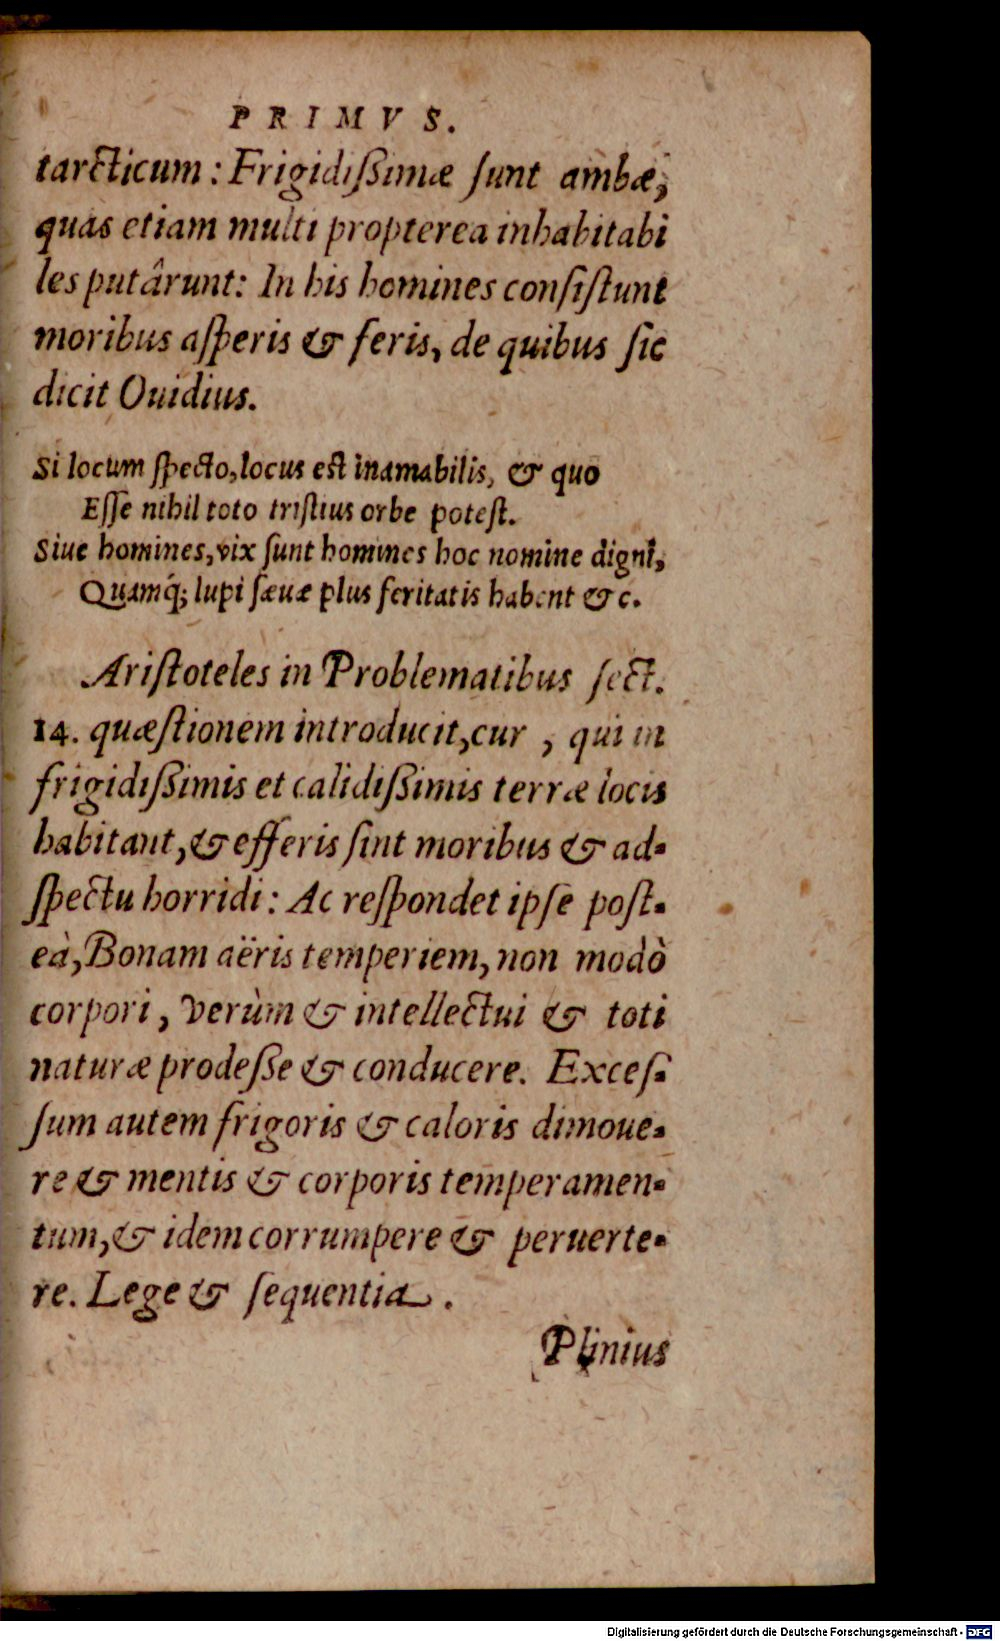 PRIMVS.
tarcticum: Frigidißimæ ſunt ambæ,
quas etiam multi propterea inhabitabi
les putârunt: In his homines conſiſtunt
moribus aſperis & feris, de quibus ſic
dicit Ouidius.
Si locum ſpecto, locus est inamabilis, & quo
Eſſe nihil toto triſtius orbe poteſt.
Siue homines, vix ſunt homines hoc nomine digni,
Quamq́; lupi ſæuæ plus feritatis habent & c.
Ariſtoteles in Problematibus ſect.
14. quæſtionem introducit, cur, qui in
frigidißimis et calidißimis terræ locis
habitant, & efferis ſint moribus & ad-
ſpectu horridi: Ac reſpondet ipſe poſt-
eà, Bonam aëris temperiem, non modò
corpori, verùm & intellectui & toti
naturæ prodeße & conducere. Exceſ-
ſum autem frigoris & caloris dimoue-
re & mentis & corporis temperamen-
tum, & idem corrumpere & peruerte-
re. Lege & ſequentia.
Plinius
Digitalisierung gefördert durch die Deutsche Forschungsgemeinschaft - DFG